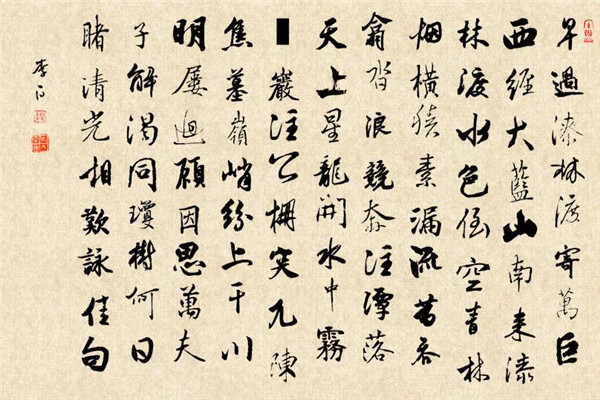 早過漆林渡寄萬巨
西經大藍山南来漆
林渡水色倒空青林
烟橫積素漏流昔吞
翕沓浪競奔注潭落
天上星龍開水中霧
巖注公柵突兀陳
焦墓嶺峭紛上干川
明屢迴顧因思萬夫
子解渴同瓊樹何日
睹清光相歡詠佳句
李白